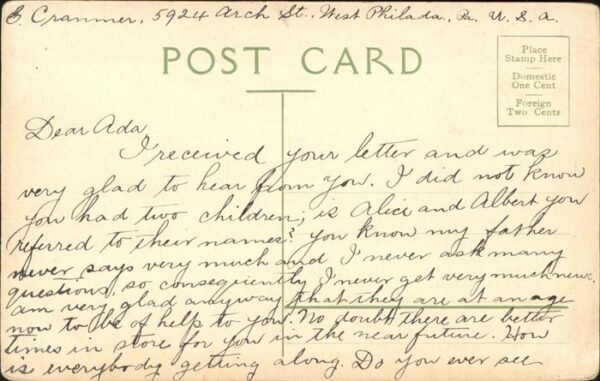 Cranmer, 5924 Arch St., West Philada., Pa. U. S. A.
POST CARD
Place
Stamp Here
Domestic
One Cent
Foreign
Two Cents
Dear Ada,
I received your letter and was
very glad to hear from you. I did not know
you had two children; is Alice and Albert you
referred to their names? You know my father
never says very much and I never ask many
questions, so consequently I never get very much news.
am very glad anyway that they are at an age
now to be of help to you. No doubt there are better
times in store for you in the near future. How
is everybody getting along. Do you ever see